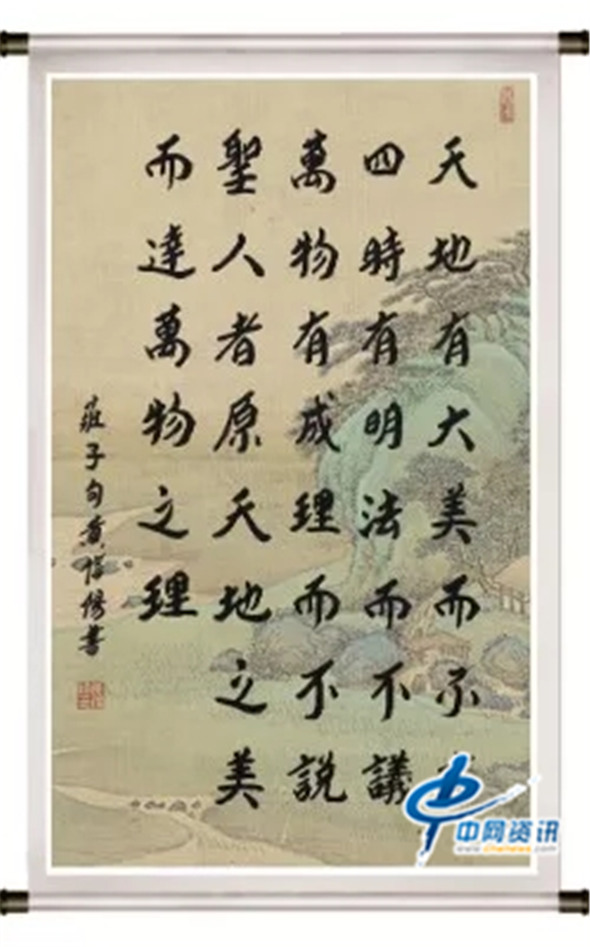 天地有大美而不
四時有明法而不議
萬物有成理而不説
聖人者原天地之美
而達萬物之理
莊子句黄
書
中网资讯
www.chenews.com